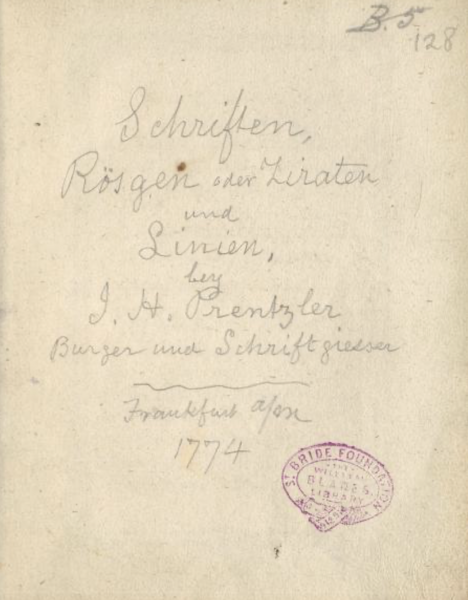 B. 5
128
Schriften,
Rösgen oder Ziraten
und
Linien,
bey
J. H. Prentzler
Burger und Schriftgiesser
Frankfurt a/m
1774
ST BRIDE FOUNDATION
THE
WILLIAM
BLADES
LIBRARY